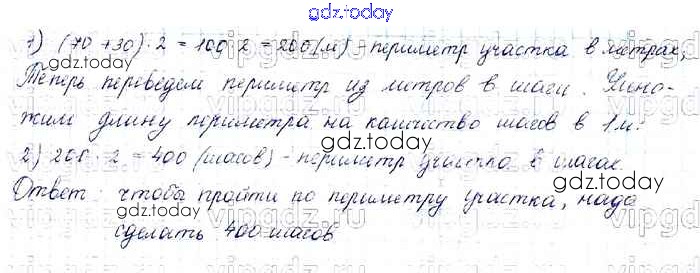 gdz.today
1) (70 + 30) · 2 = 100 · 2 = 200 (м) - периметр участка в метрах,
gdz.today
Теперь переведем периметр из метров в шаги. Умно-
жим длину периметра на количество шагов в 1 м:
2) 200 · 2 = 400 (шагов) - периметр участка в шагах.
gdz.today
Ответ: чтобы пройти по периметру участка, надо
gdz.today
сделать 400 шагов